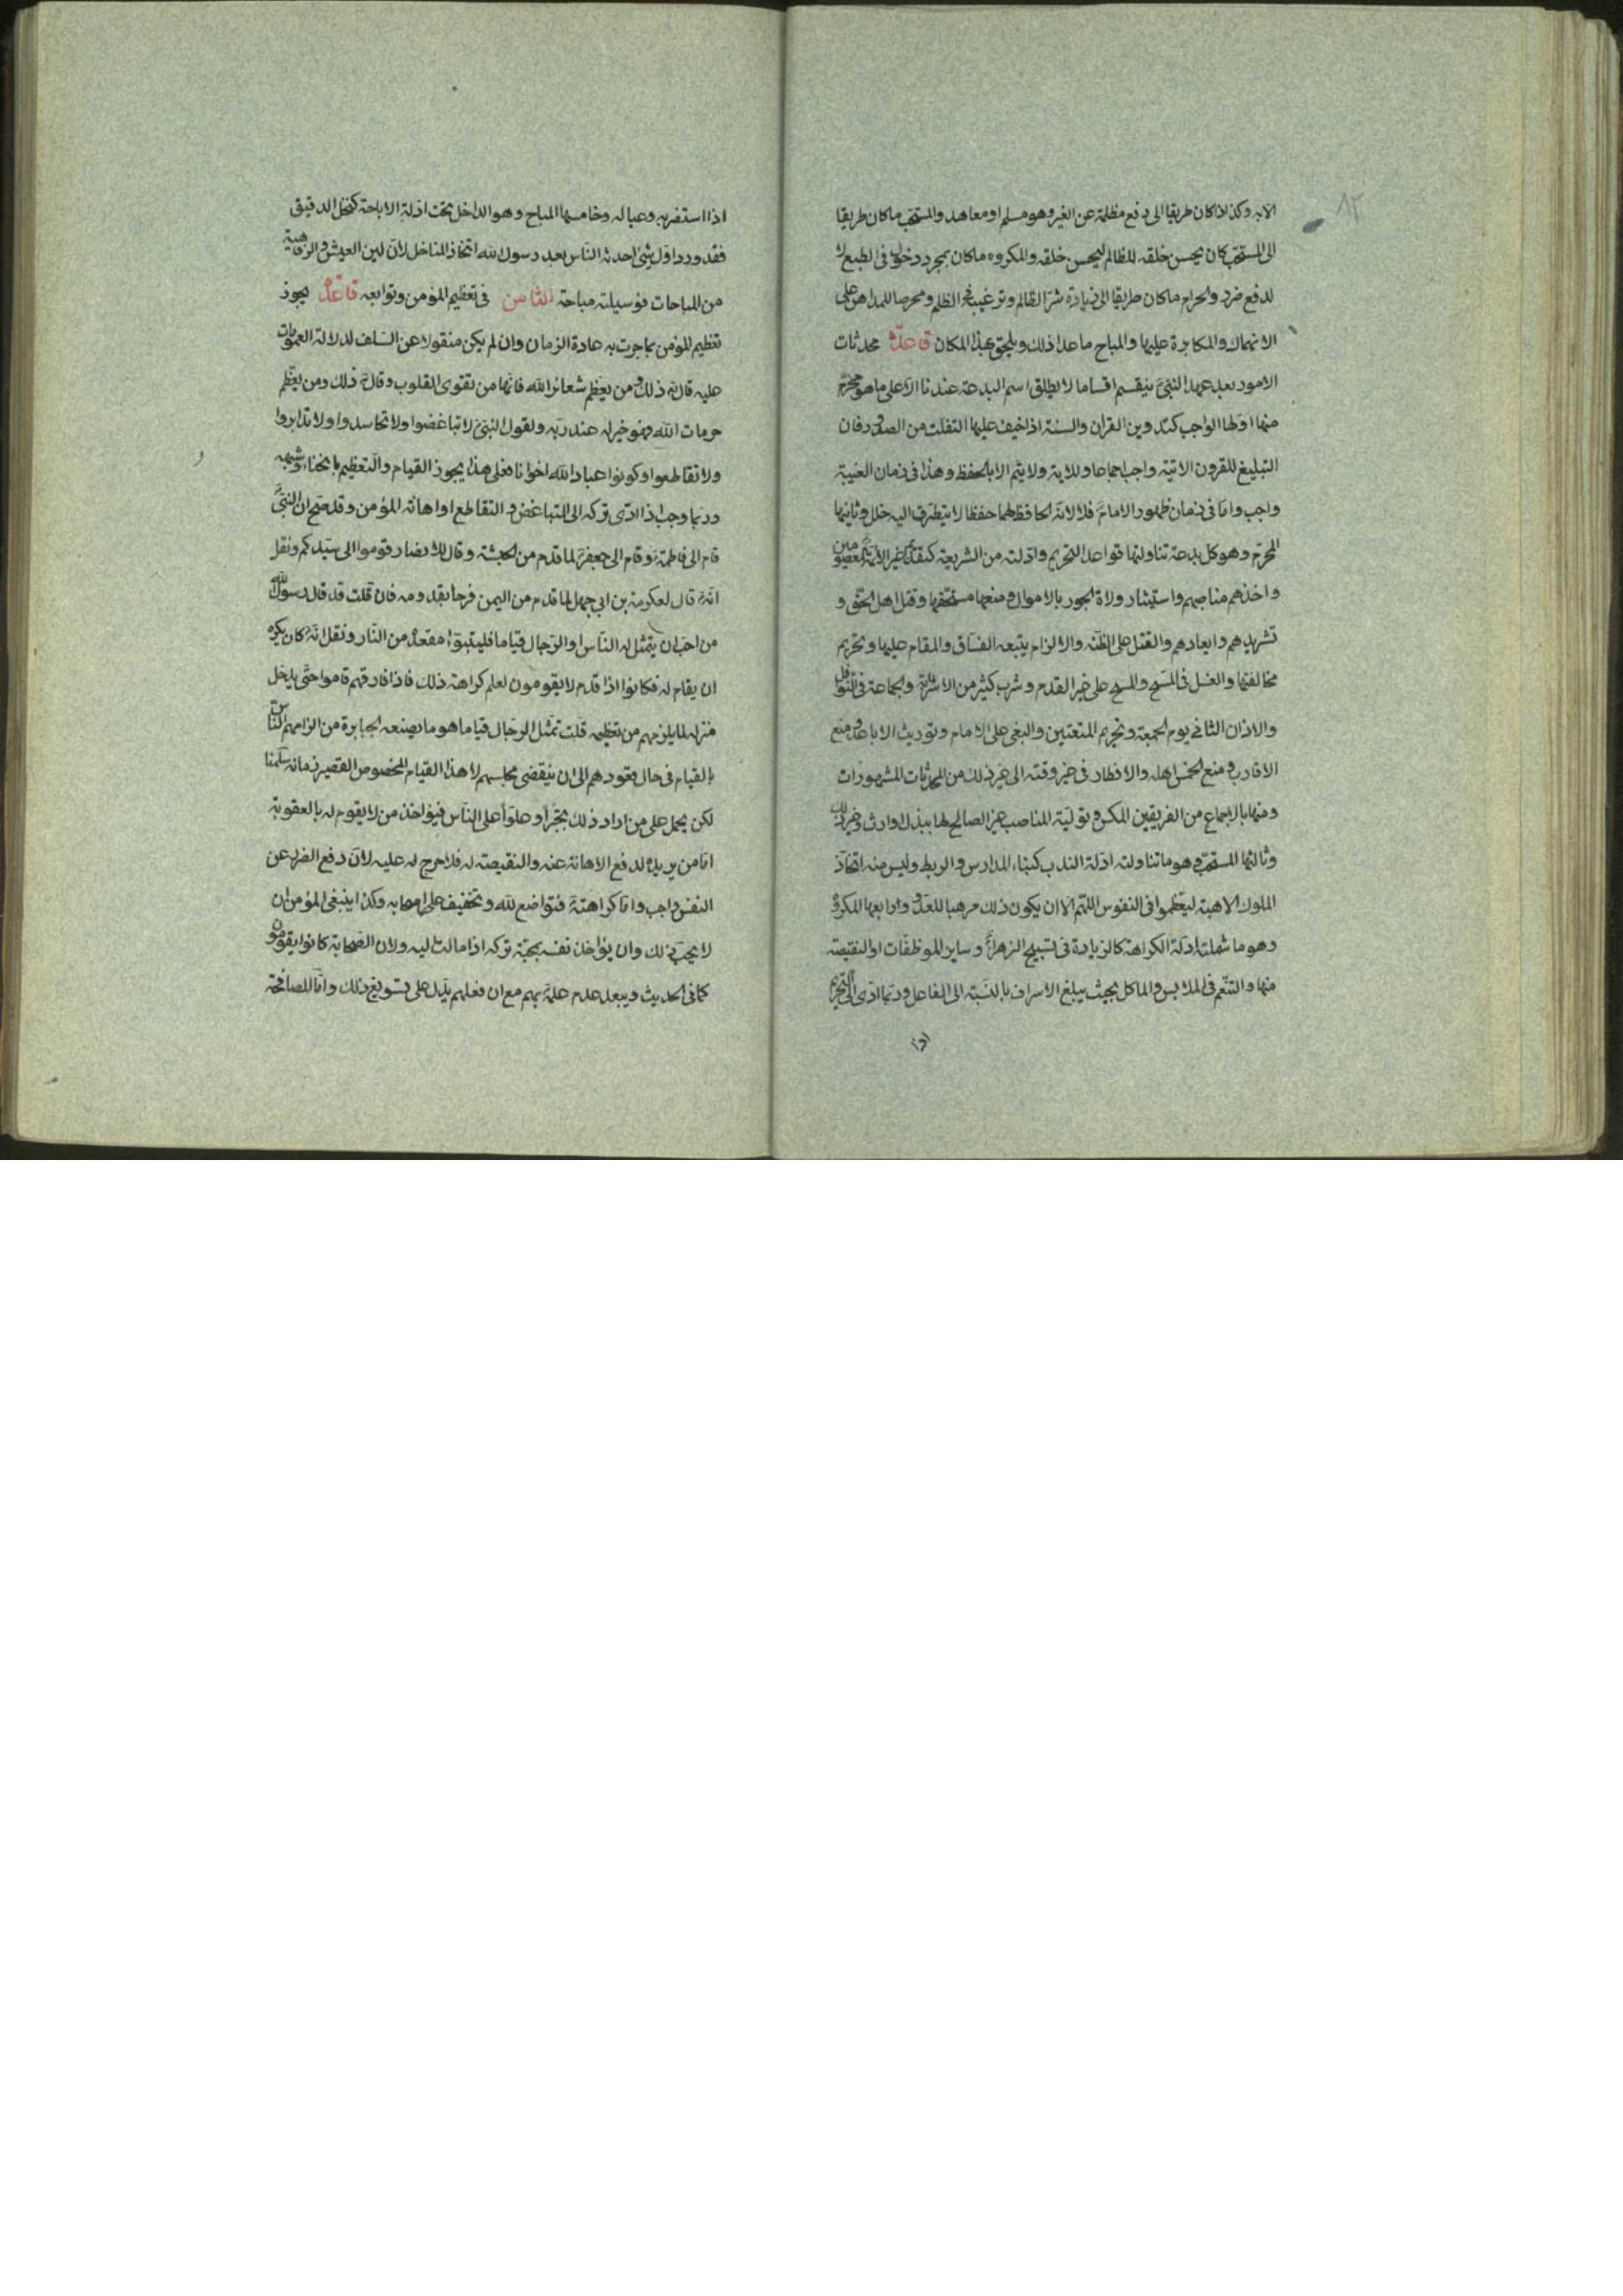 ٨٢
الا به وكذا اذا كان طريقا الى دفع مظلمة عن الغير وهو مسلم او معاهد والمستحب ما كان طريقا
الى المستحب كان يحسن خلقه للظالم ليحسن خلقه والمكروه ما كان بمجرد دخوله فى الطبع لا
لدفع ضرر والحرام ما كان طريقا الى زيادة شر الظالم وترغيبه فى الظلم ومحرصا للمداهن على
الانهماك والمكابرة عليها والمباح ما عدا ذلك ويلحق بهذا المكان قاعدة محدثات
الامور بعد عهد النبىّ ينقسم اقساما لا يطلق اسم البدعة عندنا الا على ما هو محرّم
منها اولها الواجب كتدوين القران والسنة اذا خيف عليها التفلت من الصدور فان
التبليغ للقرون الاتية واجب اجماعا وللاية ولا يتم الا بالحفظ وهذا فى زمان الغيبة
واجب واما فى زمان ظهور الامام فلا لانه الحافظ لهما حفظا لا يتطرق اليه خلل وثانيها
المحرّم وهو كل بدعة تناولتها قواعد التحريم وادلته من الشريعة كتقديم غير الائمة المعصومين
واخذهم مناصبهم واستيثار ولاة الجور بالاموال ومنعها مستحقها وقتل اهل الحق و
تشريدهم وابعادهم والقتل على الظنه والالزام ببيعة الفساق والمقام عليها وتحريم
مخالفتها والغسل فى المسح والمسح على غير القدم وشرب كثير من الاشربة والجماعة فى النوافل
والاذان الثانى يوم الجمعة وتحريم المتعتين والبغى على الامام وتوريث الاباعد ومنع
الاقارب ومنع الخمس اهله والافطار فى غير وقته الى غير ذلك من المحدثات المشهورات
ومنها بالاجماع من الفريقين المكس وتولية المناصب غير الصالح لها ببذل او ارث وغير ذلك
وثالثها المستحب وهو ما تناولته ادلة الندب كبناء المدارس والربط وليس منه اتخاذ
الملوك الاهبة ليعظموا فى النفوس اللهم الا ان يكون ذلك مرهبا للعدو ورابعها المكروه
وهو ما شملته ادلة الكراهة كالزيادة فى تسبيح الزهراء وساير الموظفات او النقيصة
منها والتنعم فى الملابس والماكل بحيث يبلغ الاسراف بالنسبة الى الفاعل وربما ادى الى التحريم
اذا
اذا استضر به وعياله وخامسها المباح وهو الداخل تحت ادلة الاباحة كنخل الدقيق
فقد ورد اول شئ احدثه الناس بعد رسول الله اتخاذ المناخل لان لين العيش والرفاهية
من المباحات فوسيلته مباحة الثامن فى تعظيم المؤمن وتوابعه قاعدة يجوز
تعظيم المؤمن بما جرت به عادة الزمان وان لم يكن منقولا عن السلف لدلالة العمومات
عليه قال ذلك ومن يعظم شعائر الله فانها من تقوى القلوب وقال ذلك ومن يعظم
حرمات الله فهو خير له عند ربه ولقول النبىّ لا تباغضوا ولا تحاسدوا ولا تدابروا
ولا تقاطعوا وكونوا عباد الله اخوانا فعلى هذا يجوز القيام والتعظيم بانحناء وشبهه
وربما وجب اذا ادّى تركه الى التباغض والتقاطع او اهانة المؤمن وقد صح ان النبىّ
قام الى فاطمة وقام الى جعفر لما قدم من الحبشة وقال للانصار قوموا الى سيدكم ونقل
انه قال لعكرمة بن ابى جهل لما قدم من اليمن فرحا بقدومه فان قلت قد قال رسول الله
من احب ان يتمثل له الناس او الرجال قياما فليتبوّأ مقعده من النار ونقل انه كان يكره
ان يقام له فكانوا اذا قدم لا يقومون لعلم كراهته ذلك فاذا فارقهم قاموا حتى يدخل
منزله لما يلزمهم من تعظيمه قلت تمثل الرجال قياما هو ما يصنعه الجبابرة من الزامهم الناس
بالقيام فى حال قعودهم الى ان ينقضى مجلسهم لا هذا القيام المخصوص القصير زمانه سلمنا
لكن يحمل على من اراد ذلك تجبرا وعلوا على الناس فيؤاخذ من لا يقوم له بالعقوبة
اما من يريده لدفع الاهانة عنه والنقيصة له فلا حرج له عليه لان دفع الضرر عن
النفس واجب واما كراهته فتواضع لله وتخفيف على اصحابه وكذا ينبغى المؤمن ان
لا يحب ذلك وان يؤاخذ نفسه بمحبة تركه اذا مالت اليه ولان الصحابة كانوا يقومون
كما فى الحديث ويبعد عدم علمه بهم مع ان فعلهم يدل على تسويغ ذلك واما المصافحة